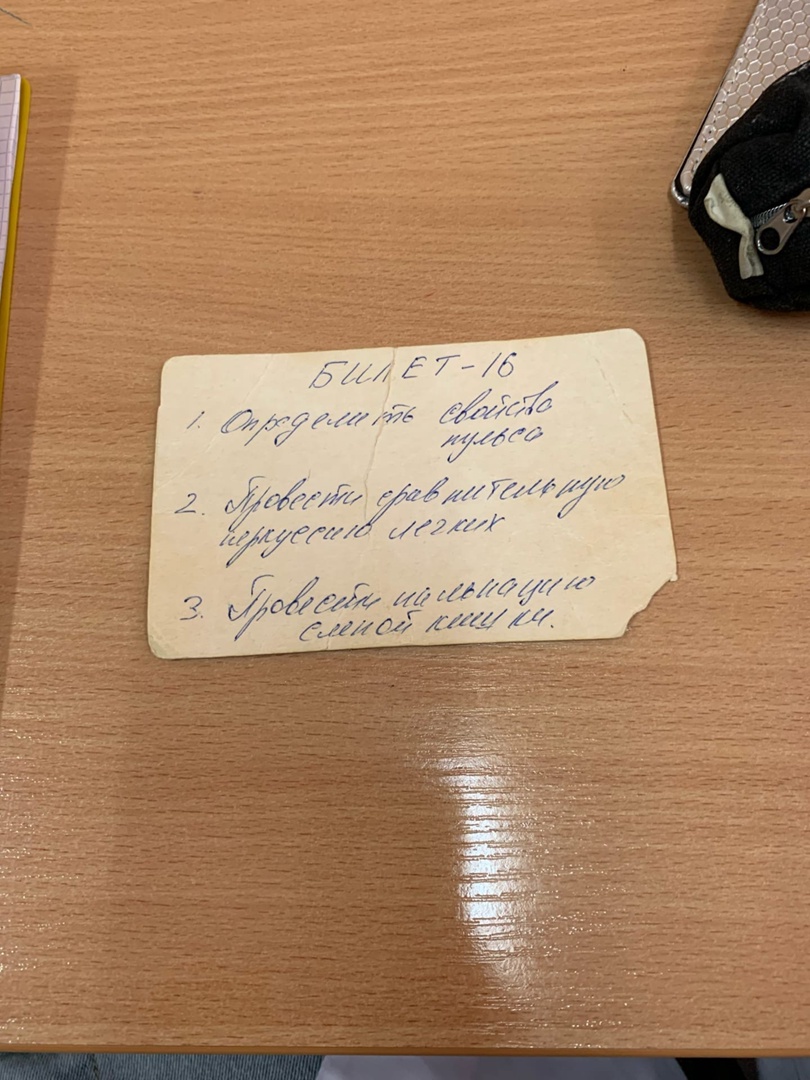 БИЛЕТ-16
1. Определить свойства
пульса
2. Провести сравнительную
перкуссию легких
3. Провести пальпацию
слепой кишки.